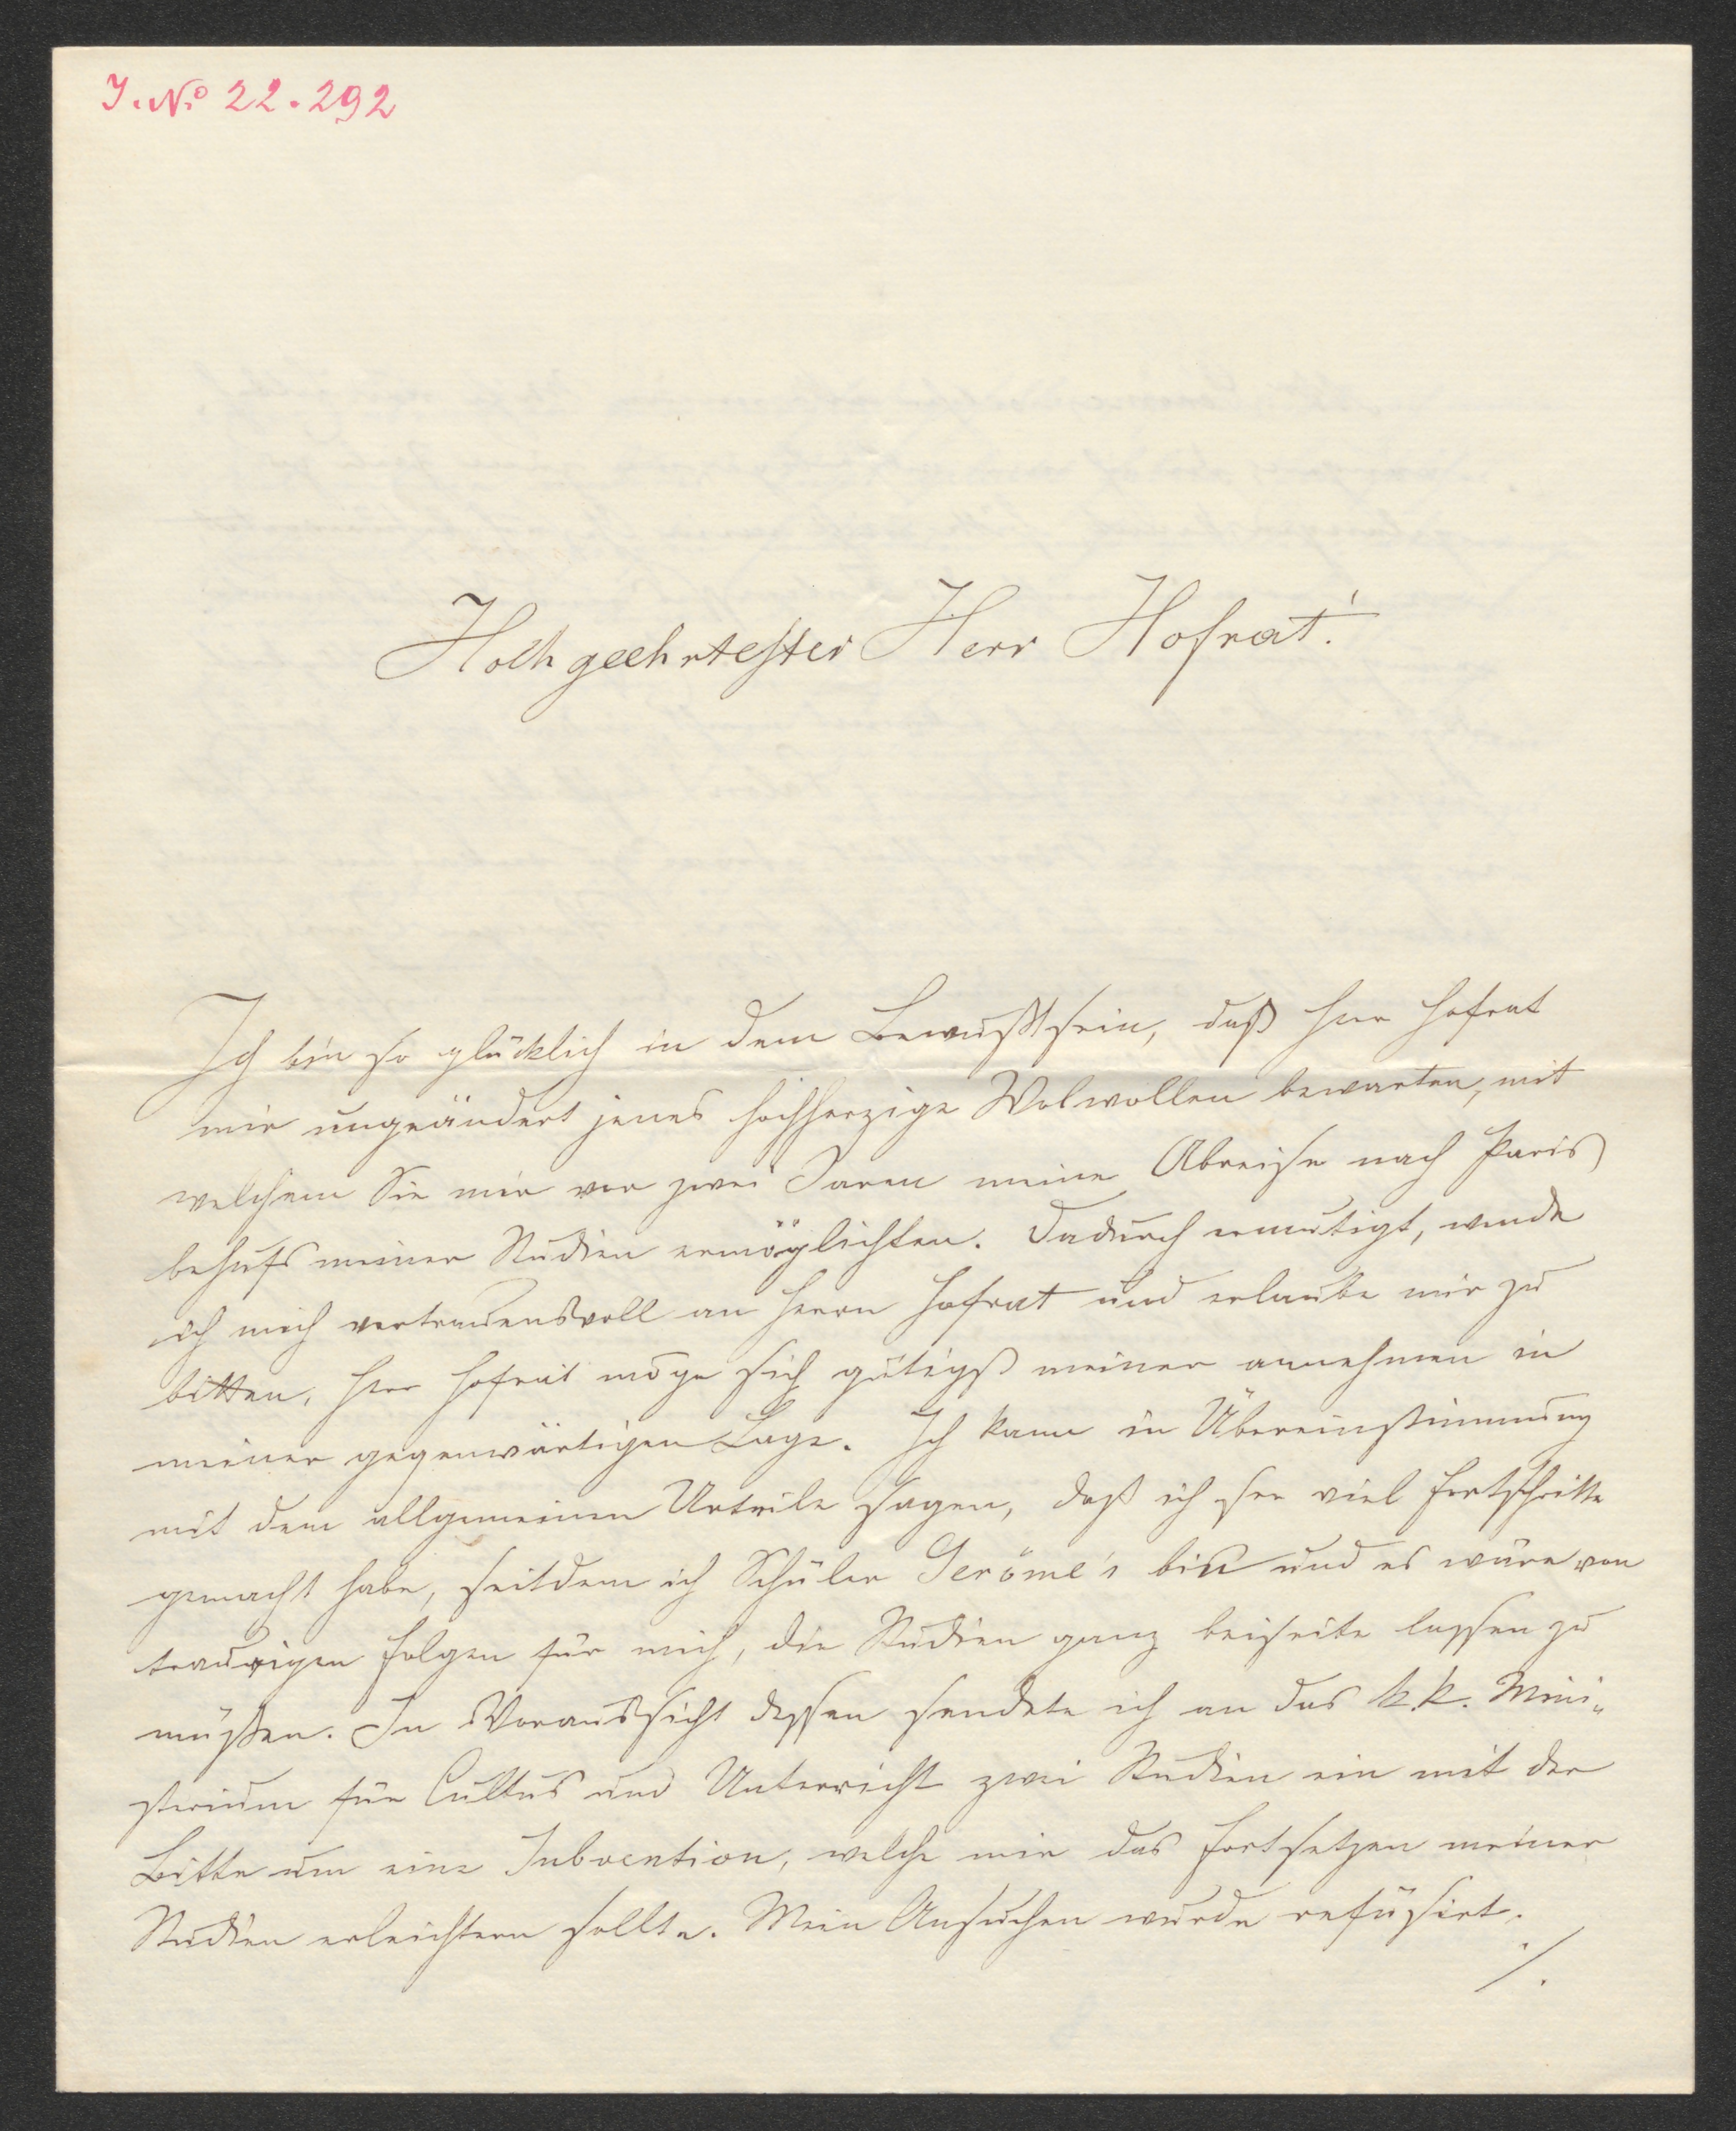 I. No 22.292
Hochgeehrtester Herr Hofrat!
Ich bin so glücklich in dem Bewußtsein, daß Herr Hofrat
mir ungeändert jenes hochherzige Wolwollen bewarten, mit
welchem Sie mir vor zwei Jaren meine Abreise nach Paris
behufs meiner Studien ermöglichten. Dadurch ermutigt, wende
ich mich vertrauensvoll an Herrn Hofrat und erlaube mir zu
bitten, Herr Hofrat möge sich gütigst meiner annehmen in
meiner gegenwärtigen Lage. Ich kann in Übereinstimmung
mit dem allgemeinen Urteile sagen, daß ich ser viel Fortschritte
gemacht habe, seitdem ich Schüler Gerôme's bin und es wäre von
traurigen Folgen für mich, die Studien ganz beiseite lassen zu
müßen. In Voraussicht dessen sendete ich an das k. k. Mini-
sterium für Cultus und Unterricht zwei Studien ein mit der
Bitte um eine Subvention, welche mir das Fortsetzen meiner
Studien erleichtern sollte. Mein Ansuchen wurde refüsirt.
./.